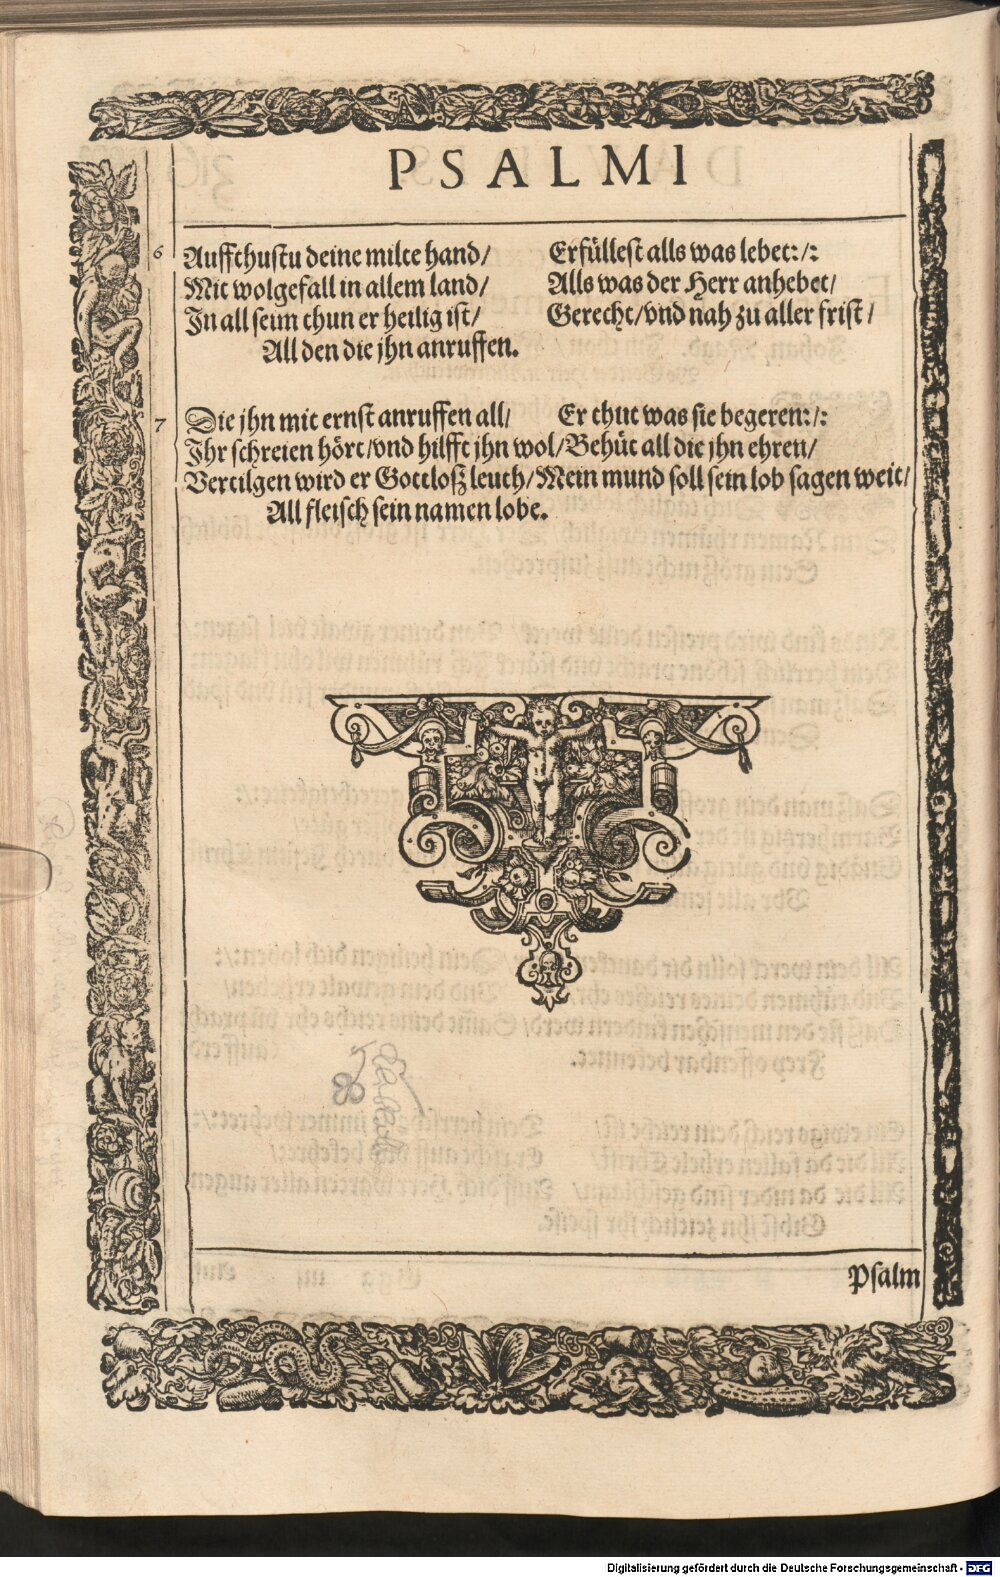 PSALMI
6 Auffthustu deine milte hand/ Erfüllest alls was lebet:/:
Mit wolgefall in allem land/ Alls was der Herr anhebet/
In all seim thun er heilig ist/ Gerecht/vnd nah zu aller frist/
All den die jhn anruffen.
7 Die jhn mit ernst anruffen all/ Er thut was sie begeren:/:
Ihr schreien hört/vnd hilfft jhn wol/Behüt all die jhn ehren/
Vertilgen wird er Gottloß leuth/Mein mund soll sein lob sagen weit/
All fleisch sein namen lobe.
Psalm
Digitalisierung gefördert durch die Deutsche Forschungsgemeinschaft - DFG